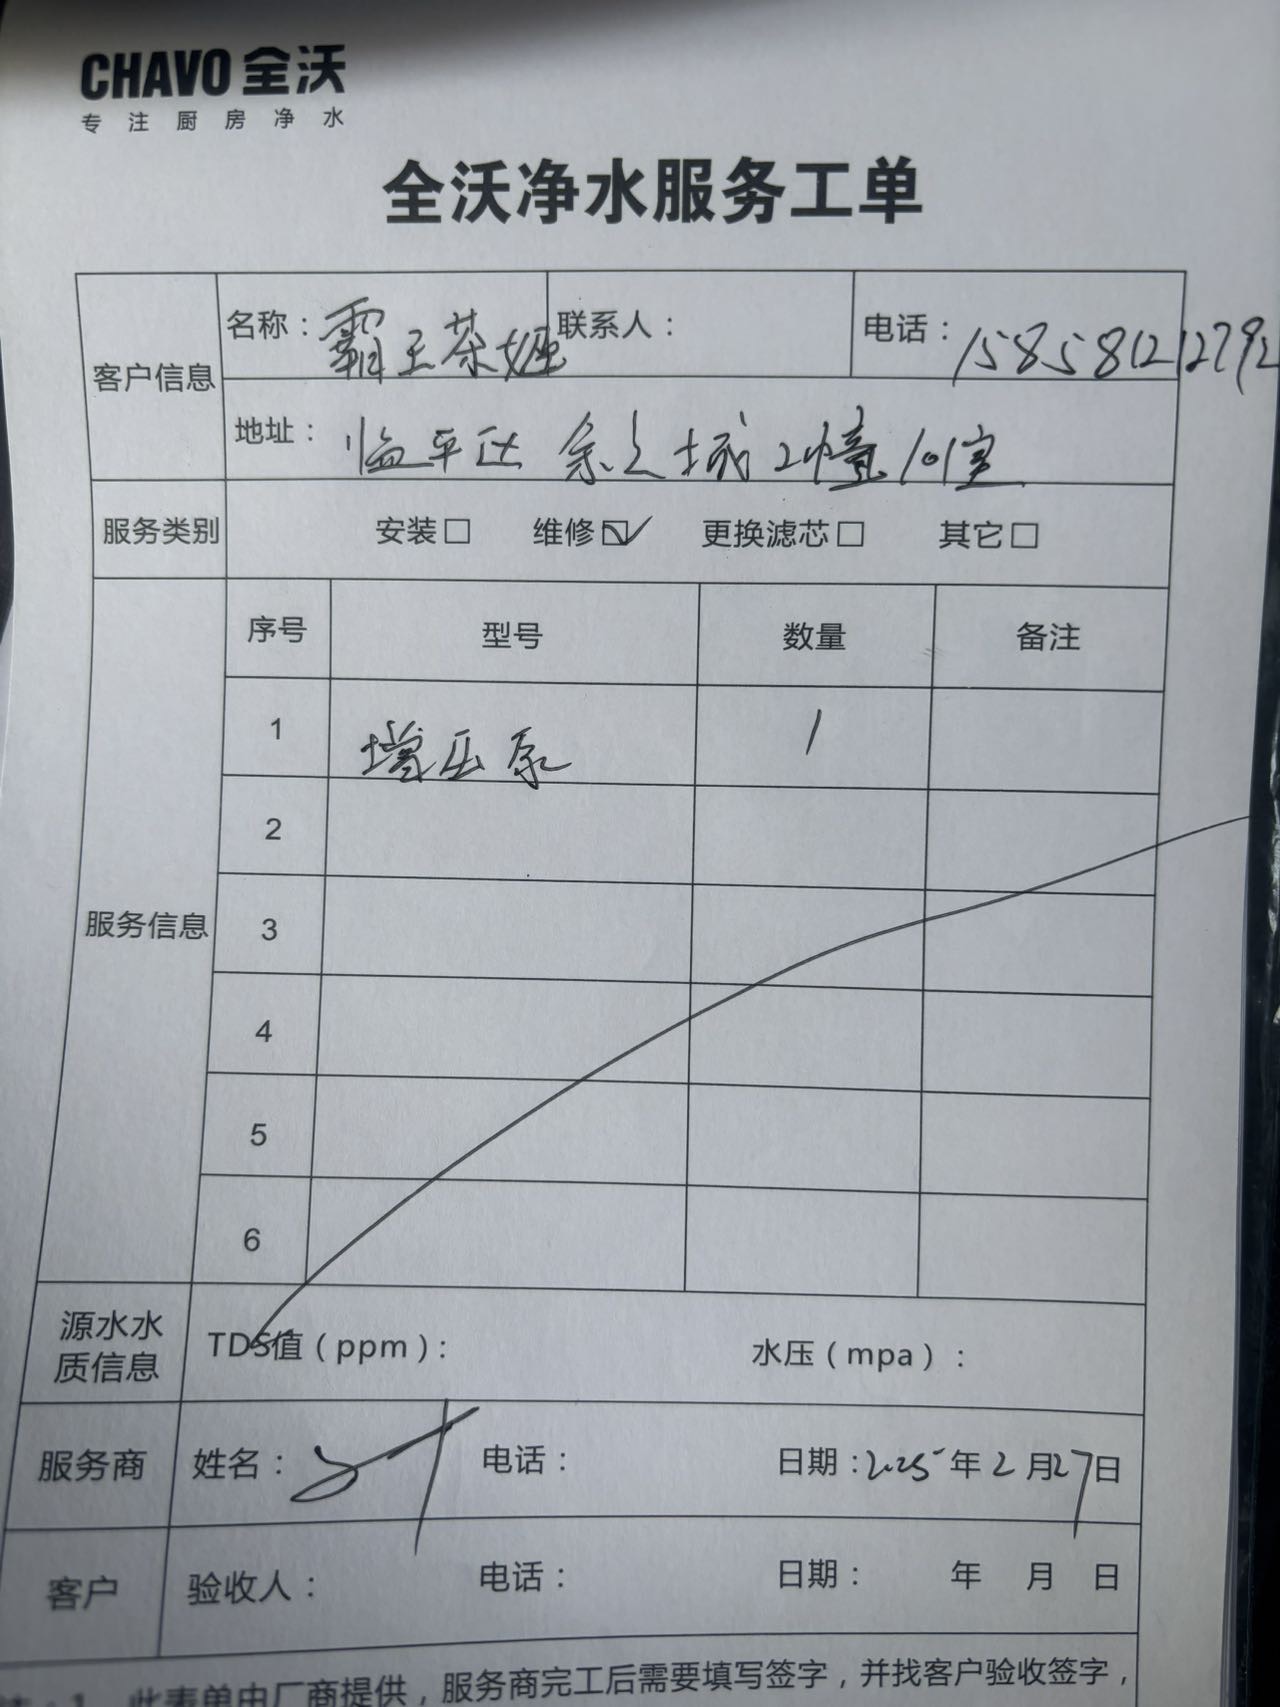 CHAVO 全沃
专注厨房净水
全沃净水服务工单
客户信息
名称：霸王茶姬 联系人： 电话：15858121292
地址：临平区 余之城2幢101室
服务类别 安装□ 维修☑ 更换滤芯□ 其它□
服务信息
序号 型号 数量 备注
1 增压泵 1
2
3
4
5
6
源水水质信息 TDS值（ppm）： 水压（mpa）：
服务商 姓名： 电话： 日期：2025年2月27日
客户 验收人： 电话： 日期： 年 月 日
1 此表单由厂商提供，服务商完工后需要填写签字，并找客户验收签字，